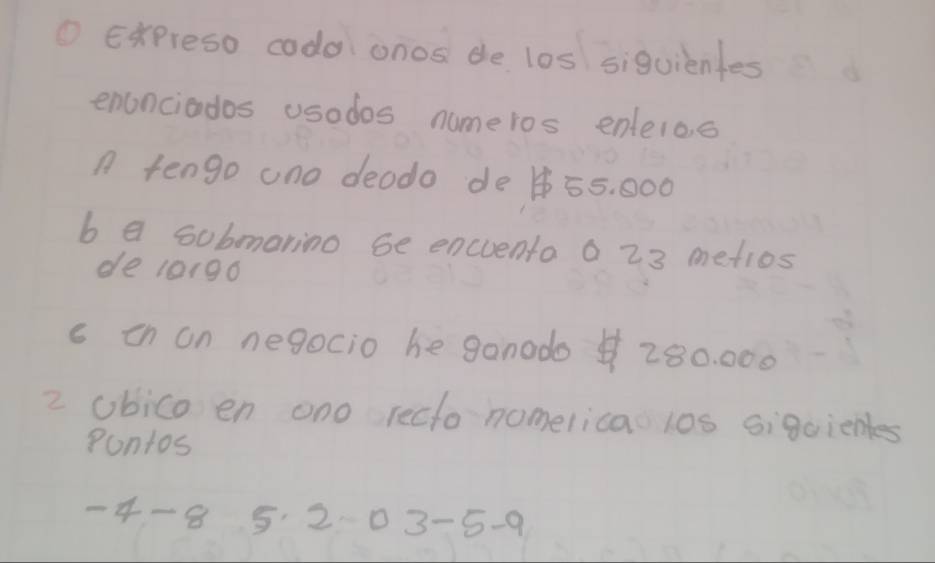 O Expreso cada unos de los siguientes
enunciados usados numeros enteros
A tengo una deuda de $55.000
b a submarino se encuenta a 23 metros
de largo
c en un negocio he ganado $ 280.000
2 Ubico en una recta numerica los siguientes
Puntos
-4 -8 5. 2 -0 3 -5 -9